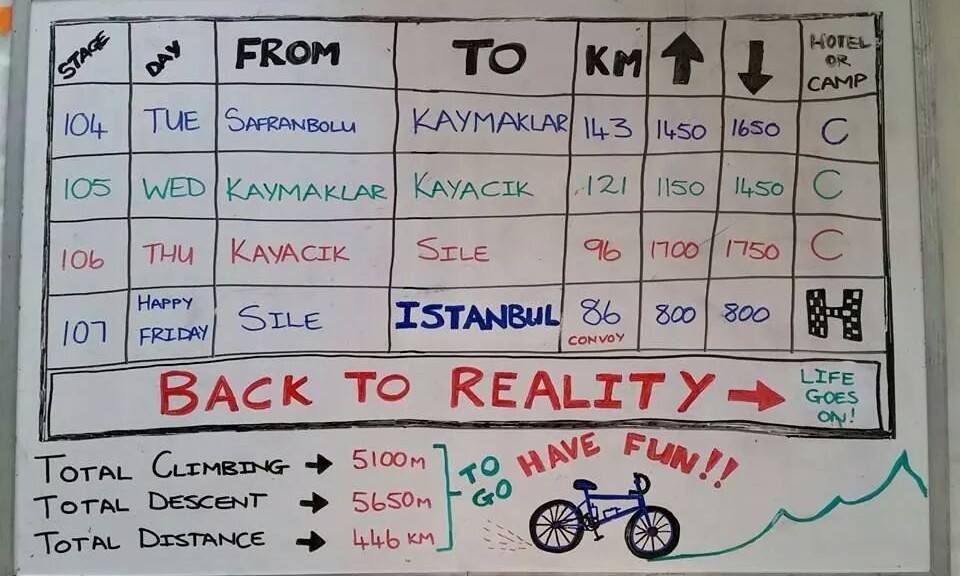 STAGE DAY FROM TO KM ↑ ↓ HOTEL OR CAMP
104 TUE SAFRANBOLU KAYMAKLAR 143 1450 1650 C
105 WED KAYMAKLAR KAYACIK 121 1150 1450 C
106 THU KAYACIK SILE 96 1700 1750 C
107 HAPPY FRIDAY SILE ISTANBUL 86 CONVOY 800 800 H
BACK TO REALITY → LIFE GOES ON!
TOTAL CLIMBING → 5100M
TOTAL DESCENT → 5650M
TOTAL DISTANCE → 446 KM
TO GO
HAVE FUN!!